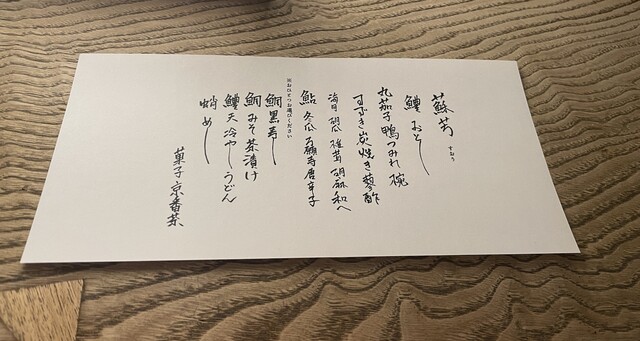 蘇芳 すおう
鱧 おとし
丸茄子 鴨つみれ 椀
すずき炭焼き蓼酢
海月 胡瓜 椎茸 胡麻和へ
鮎 冬瓜 万願寺唐辛子
※おひとつお選びください
鯛黒寿し
鯛みそ茶漬け
鱧天冷やしうどん
蛸めし
菓子 京番茶